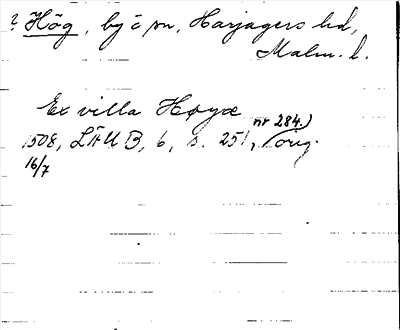 ? Hög, by o sn, Harjagers hd,
Malm. l.
Ex villa Høyæ
nr 284.)
1508, LÄU B, 6, s. 251, (orig.
16/7